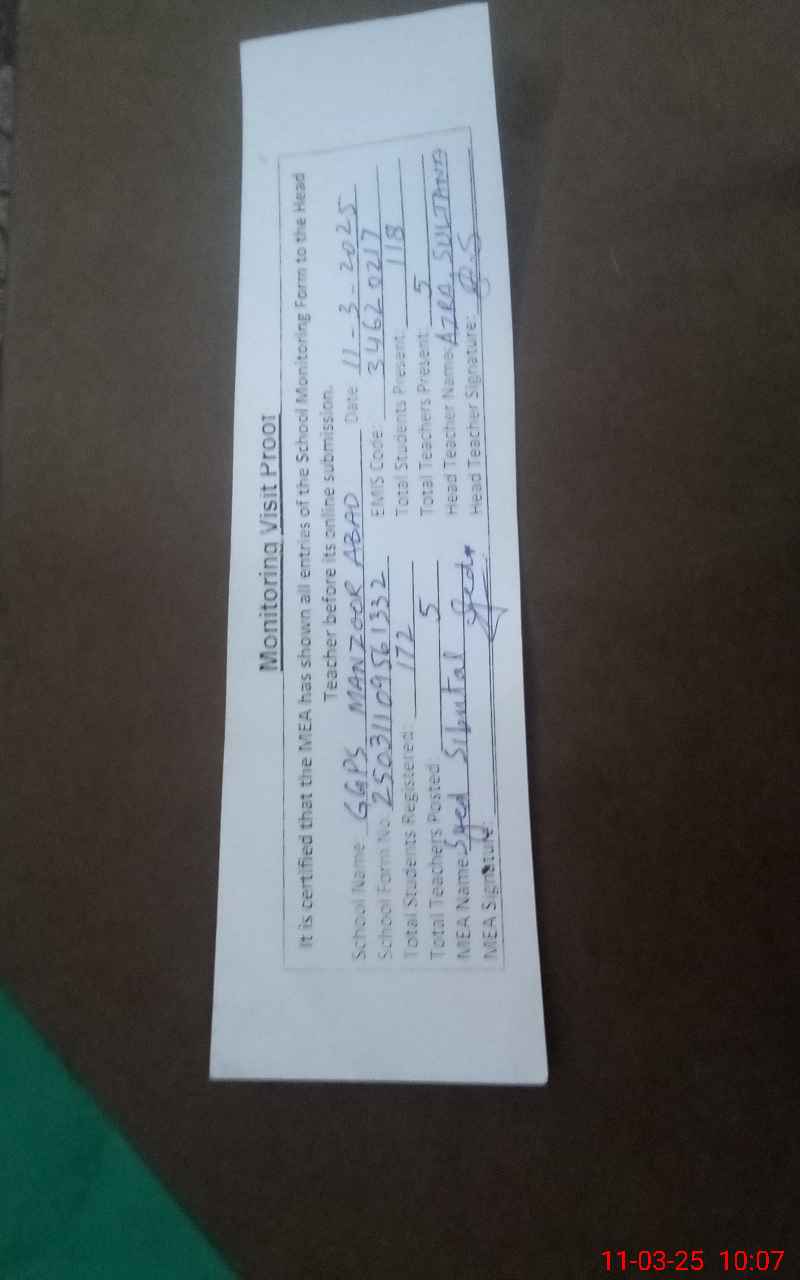 Monitoring Visit Proof
It is certified that the MEA has shown all entries of the School Monitoring Form to the Head
Teacher before its online submission.
School Name: GGPS MANZOOR ABAD Date: 11-3-2025
School Form No. 250311109561332 EMIS Code: 34620217
Total Students Registered: 172 Total Students Present: 118
Total Teachers Posted 5 Total Teachers Present: 5
MEA Name: Syed Sibutal Head Teacher Name: AZRA SULTANA
MEA Signature: Head Teacher Signature:
11-03-25 10:07